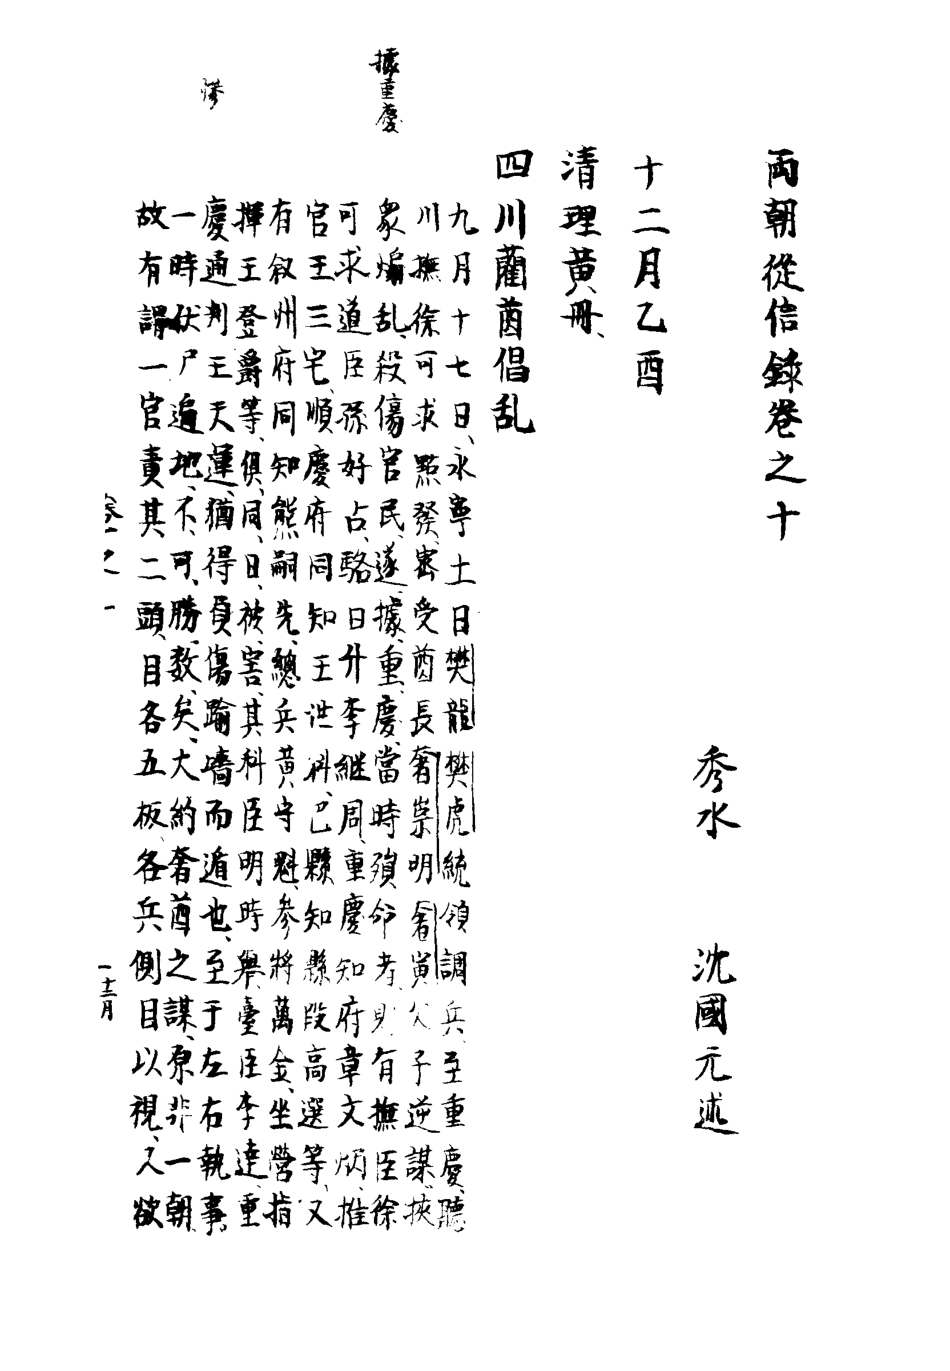 両朝從信錄卷之十
秀水 沈國元述
十二月乙酉
清理黄冊、
四川藺酋倡乱
九月十七日、永寧土目樊龍樊虎統領調兵至重慶、聽
川撫徐可求點發、密受酋長奢崇明奢寅父子逆謀、挾
衆煽乱、殺傷官民、遂據重慶、當時殞命者、則有撫臣徐
可求道臣孫好古、駱日升李継周、重慶知府章文炳、推
官王三宅、順慶府同知王世科、巴縣知縣段高選等、又
有叙州府同知熊嗣先、總兵黄守魁、参将萬金、坐營指
揮王登爵等、俱同日被害、其科臣明時舉、臺臣李達、重
慶通判王天運、猶得負傷踰墻而遁也、至于左右執事、
一時伏尸遍地、不可勝数矣、大約奢酋之謀、原非一朝、
故有謂一官責其二頭目各五板、各兵側目以視、久欲
據重慶
卷十之一
十二月